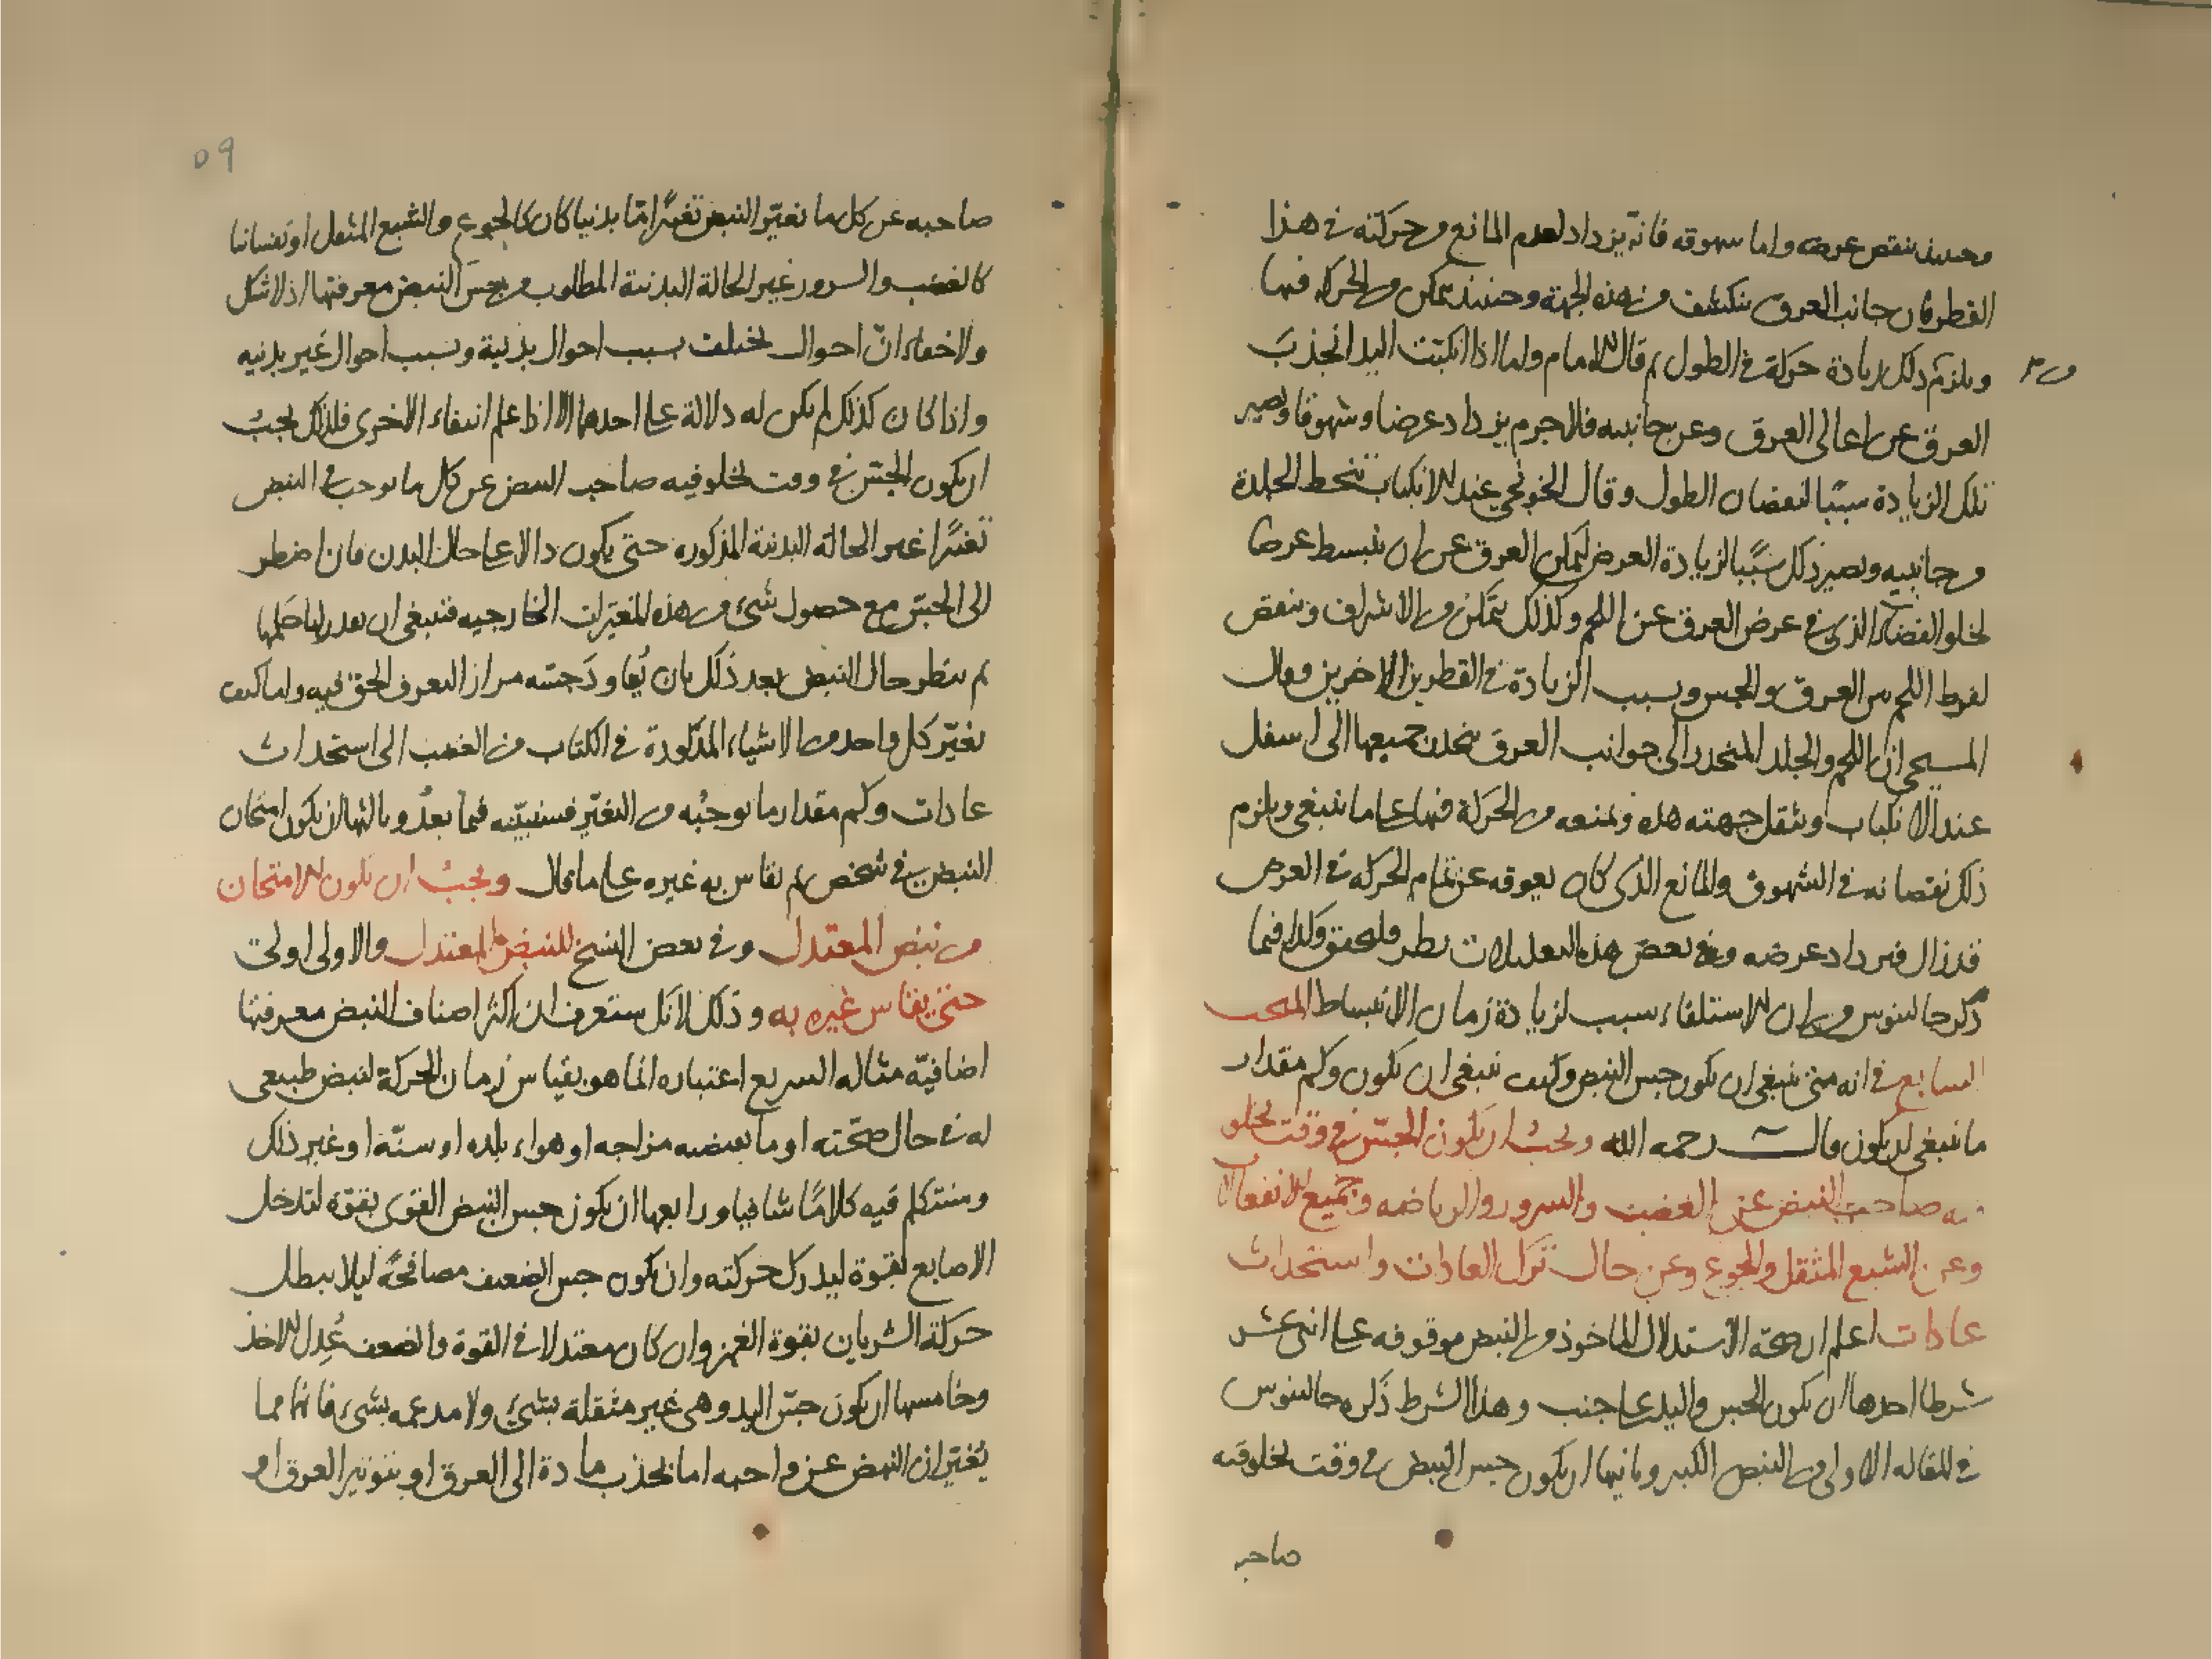 وحينئذ ينقص عرضه واما شهوقه فانه يزداد لعدم المانع من حركته في هذا
القطر فان جانب العرق ينكشف من هذه الجهة وحينئذ يتمكن من الحركة فيها
ويلزم ذلك زيادة حركة في الطول قال الامام واما اذا انكبت اليد انجذب
العرق عن اعالي العرق وعن جانبيه فلا جرم يزداد عرضا وشهوقا وتصير
تلك الزيادة سببا لنقصان الطول وقال الخونجي عند الانكباب تنحط الجلدة
من جانبيه ويصير ذلك سببا لزيادة العرض لتمكن العرق عن ان ينبسط عرضا
لخلو الفضاء الذي في عرض العرق عن اللحم وكذلك يتمكن من الاشراف وينقص
اللحم بين العرق والجس وبسبب الزيادة في القطرين الاخرين وقال
المسيحي ان اللحم والجلد المنحدر الى جوانب العرق ينحدر جميعها الى اسفل
عند الانكباب ويثقل جهته هذه ويمنعه من الحركة فيها على ما ينبغي ويلزم
ذلك نقصانه في الشهوق والمانع الذي كان يعوقه عن تمام الحركة في العرض
قد زال فيزداد عرضه وفي بعض هذه التعليلات نظر فليحقق وكذا فيما
ذكر جالينوس من ان الاستلقاء سبب لزيادة زمان الانبساط المبحث
السابع في انه متى ينبغي ان يكون جس النبض وكيف ينبغي ان يكون وكم مقدار
ما ينبغي ان يكون قال رحمه الله ويجب ان يكون الجس في وقت يخلو
فيه صاحب النبض عن الغضب والسرور والرياضه وجميع الانفعالات
وعن الشبع المثقل والجوع وعن حال ترك العادات واستحداث
عادات اعلم ان صحة الاستدلال الماخوذ من النبض موقوفه على اثني عشر
شرطا احدها ان يكون الجس واليد على جنب وهذا الشرط ذكره جالينوس
في المقاله الاولى من النبض الكبير وثانيها ان يكون جس النبض في وقت يخلو فيه
صاحبه
٥٩
صاحبه عن كل ما يغير النبض تغيرا اما بدنيا كان كالجوع والشبع المثقل او نفسانيا
كالغضب والسرور غير الحالة البدنية المطلوب من جس النبض معرفتها اذ لا شك
ولا خفاء ان احوال تختلف بسبب احوال بدنية وبسبب احوال غير بدنيه
واذا كان كذلك لم يكن له دلالة على احدها الا اذا علم انتفاء الاخرى فلذلك يجب
ان يكون الجس في وقت يخلو فيه صاحب النبض عن كل ما يوجب في النبض
تغيرا غير الحالة البدنية المذكوره حتى يكون دالا على حال البدن فان اضطر
الى الجس مع حصول شيء من هذه المغيرات الخارجيه فينبغي ان
ثم ينظر حال النبض بعد ذلك بان يعاود جسه مرارا لتعرف الحق فيه واما كيف
يغير كل واحد من الاشياء المذكورة في الكتاب من الغضب الى استحداث
عادات وكم مقدار ما يوجبه من التغير فسنبينه فيما بعد وثالثها ان يكون امتحان
النبض في شخص ثم يقاس به غيره على ما قال ويجب ان يكون الامتحان
من نبض المعتدل وفي بعض النسخ للنبض المعتدل والاولى اولى
حتى يقاس غيره به وذلك لانك ستعرف ان اكثر اصناف النبض معرفتها
اضافية مثاله السريع اعتباره انما هو بقياس زمان الحركة لنبض طبيعي
له في حال صحته او ما يقتضيه مزاجه او هواء بلده او سنه او غير ذلك
وسنتكلم فيه كلاما شافيا ورابعها ان يكون جس النبض القوي بقوة لتدخل
الاصابع بقوة ليدرك حركته وان يكون جس الضعيف مصافحة ليلا يبطل
حركة الشريان بقوة الغمز وان كان معتدلا في القوة والضعف عدل الاخذ
وخامسها ان يكون جس اليد وهي غير مثقلة بشيء ولا مدعمه بشيء فانهما مما
يغيران النبض عن واجبه اما بجذب مادة الى العرق او بتوتير العرق او